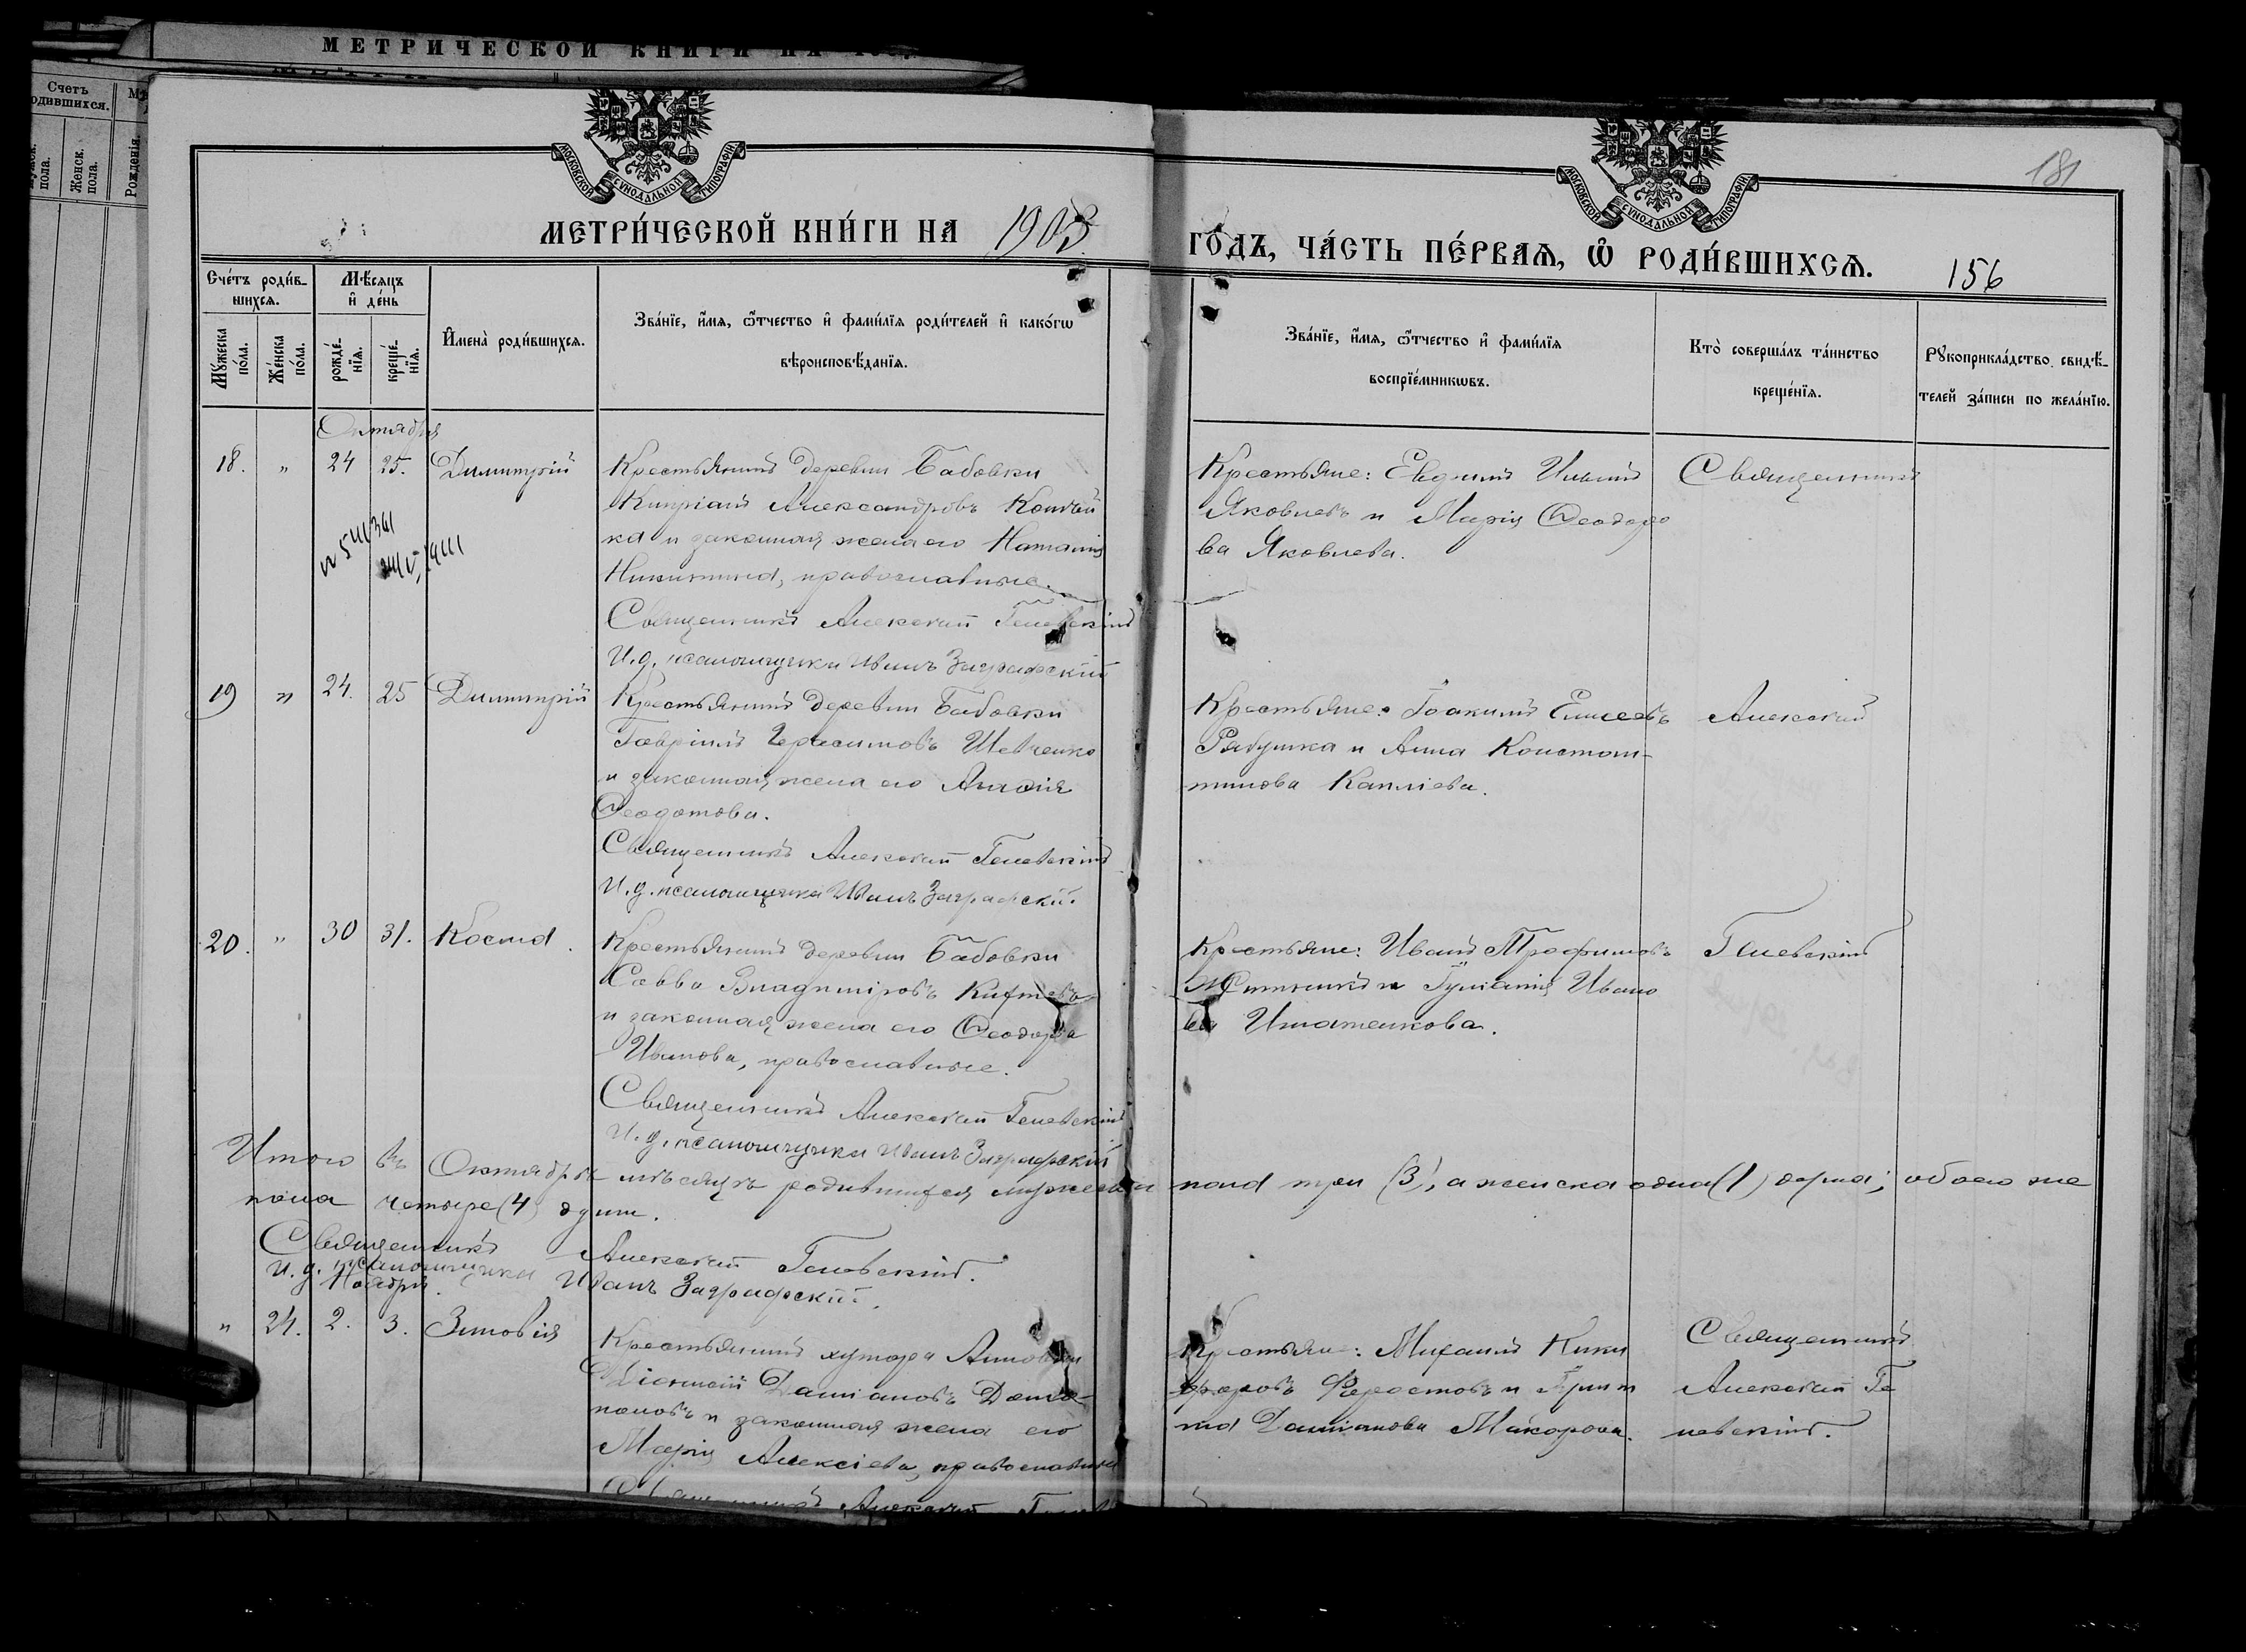 МЕТРИЧЕСКОЙ КНИГИ НА
Счетъ
родившихся.
Мужск. пола.
Женск. пола.
Рожденія.
МОСКОВСКОЙ СѴНОДАЛЬНОЙ ТИПОГРАФІИ
МОСКОВСКОЙ СѴНОДАЛЬНОЙ ТИПОГРАФІИ
181
МЕТРИ́ЧЕСКОЙ КНИ́ГИ НА 1903
ГО́ДЪ, ЧА́СТЬ ПЕ́РВАѦ, Ѡ҆ РОДИ́ВШИХСѦ.
156
Счéтъ роди́в-
шихсѧ.
Мѣ́сѧцъ
и҆ де́нь
Мꙋ́жеска по́ла.
Же́нска по́ла.
рожде́-
нїѧ.
креще́-
нїѧ.
И҆мена̀ роди́вшихсѧ.
Зва́нїе, и҆́мѧ, ѻ҆́тчество и҆ фами́лїѧ роди́телей и҆ како́гѡ
вѣроисповѣ́данїѧ.
Зва́нїе, и҆́мѧ, ѻ҆́тчество и҆ фами́лїѧ
воспрїе́мникѡвъ.
Кто̀ соверша́лъ та́инство
креще́нїѧ.
Рꙋкоприкла́дство свидѣ́-
телей за́писи по жела́нїю.
Октября
18. " 24 25. Димитрій
Крестьянинъ деревни Бабовки
Кипріанъ Александровъ
ка и законная жена его Наталія
Никитина, православные.
Священникъ Алексѣй Геневскій
И.д. псаломщика Иванъ Заграфскій
Крестьяне: Евдкимъ
Яковлевъ и Марія Ѳеодоро
ва Яковлева.
Священникъ
19 " 24. 25 Димитрій
Крестьянинъ деревни Бабовки
Гавріилъ Герасимовъ Шевченко
и законная жена его
Ѳеодотова.
Священникъ Алексѣй Геневскій
И.д. псаломщика Иванъ Заграфскій.
Крестьяне: Іоакимъ Елисеевъ
Рябушка и Анна Констан-
тинова
Алексѣй
20. " 30 31. Косма.
Крестьянинъ деревни Бабовки
Савва Владиміровъ
и законная жена его Ѳеодора
Иванова, православные.
Священникъ Алексѣй Геневскій
И.д. псаломщика Иванъ Заграфскій
Крестьяне: Иванъ Трофимовъ
и Гуліанія Ивано
ва Игнатенкова.
Геневскій
Итого въ Октябрѣ мѣсяцѣ родившихся мужеска пола три (3), а женска одна (1) душа; обоего же
пола четыре (4) души.
Священникъ Алексѣй Геневскій.
И.д. псаломщика Иванъ Заграфскій.
Ноябрь.
" 21. 2. 3. Зиновія
Крестьянинъ хутора Анновки
Діонисій Даміановъ
и законная жена его
Марія Алексіева, православные
Священникъ Алексѣй
Крестьяне: Михаилъ Ники
форовъ и
на Даміанова Макарова.
Священникъ
Алексѣй Ге
невскій.